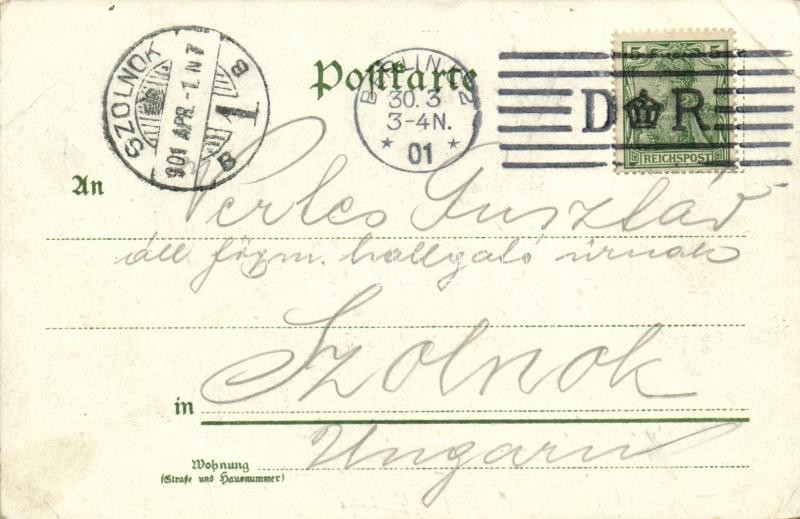 Postkarte
SZOLNOK
901 APR. -1. N 7
B 1 B
BERLIN, C.
30.3
3-4N.
* 01 *
2
5 5
D R
REICHSPOST
An Perles Gusztáv
áll főgym. hallgató úrnak
in Szolnok
Ungarn
Wohnung
(Straße und Hausnummer)